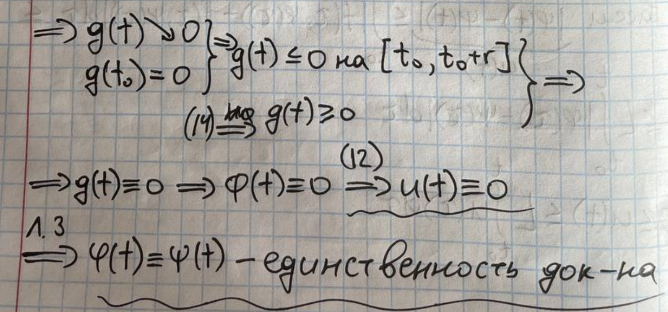 ⇒ g(t) ↘ 0 } ⇒ g(t) ≤ 0 на [t₀, t₀+r] } ⇒
g(t₀) = 0
(14) ⇒ g(t) ≥ 0
⇒ g(t) ≡ 0 ⇒ Φ(t) ≡ 0 (12) ⇒ u(t) ≡ 0
Л.3 ⇒ φ(t) ≡ ψ(t) – единственность док-на